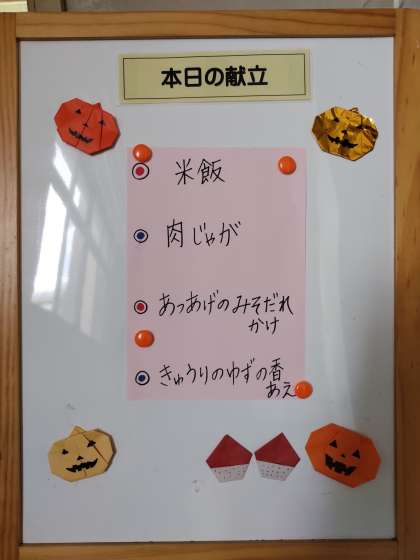 本日の献立
米飯
肉じゃが
あつあげのみそだれ
かけ
きゅうりのゆずの香
あえ